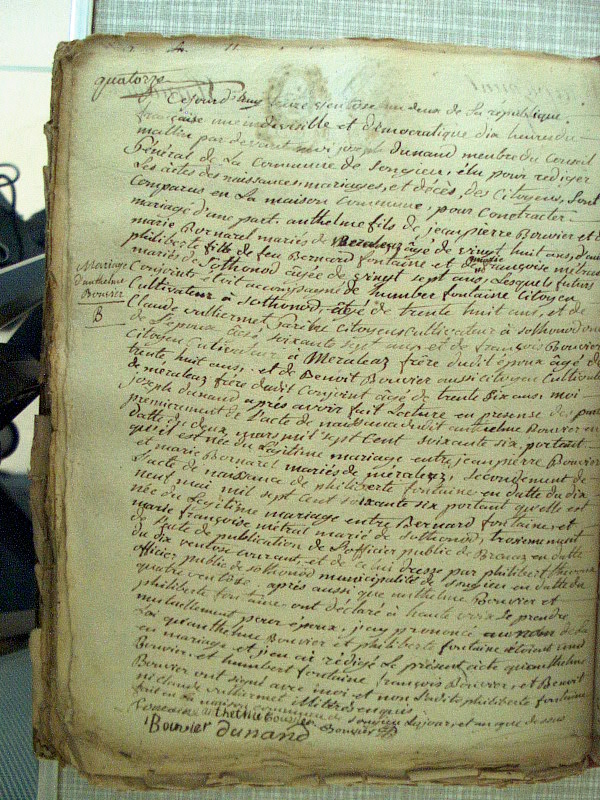 quatorze
Cejourd'huy seize ventose an deux de La république
française une indivisible et démocratique dix heures du
mattin par devant moi joseph Dunand menbre du Conseil
Général de La Commune de songieu, élu pour rediger
Les actes des naissances, mariages, et décès, des Citoyens, sont
Comparus en La maison Commune, pour Contracter
mariage d'une part anthelme fils de jean pierre Bouvier et de
marie Bornarel mariés de Méraleaz âgé de vingt huit ans, d'autre
philiberte fille de feu Bernard fontaine et de françoise métral
mariés de Sothonod âgée de vingt sept ans, Lesquels futurs
Conjoints étoit accompagné de humber fontaine Citoyen
Cultivateur à Sothonod, âgé de trente huit ans, et de
Claude vulliermet Citoyen Cultivateur à sothonod
de L'epoux âgé, soixante sept ans et de françois Bouvier
Citoyen Cultivateur à Meraleaz frère dudit époux âgé de
trente huit ans, et de Benoit Bouvier aussi citoyen Cultivateur
de méraleaz frère dudit Conjoint âgé de trente six ans, moi
joseph dunand après avoir fait Lecture en présense des parties
premierement de L'acte de naissance dudit anthelme Bouvier en
datte du deux mars mil sept Cent soixante six, portant
qu'il est née du Légitime mariage entre jean pierre Bouvier
et marie Bornarel mariés de méraleaz, secondement de
L'acte de naissance de philiberte fontaine en datte du dix
neuf mai mil sept cent soixante six portant qu'elle est
née du Légitime mariage entre Bernard fontaine, et
marie françoise métral marié de Sothonod, troisiemement
de L'acte de publication de L'officier public de Brenaz en datte
du dix ventose courant, et de celui dressé par philibert
officier public de sothonod municipalité de songieu en datte du
quatre ventose, après aussi que anthelme Bouvier et
philiberte fontaine ont déclaré à haute voix se prendre
mutuellement pour époux, j'ay prononcé au nom de la
Loi qu'anthelme Bouvier et philiberte fontaine étoient unis
en mariage, et j'en ai rédigé Le présent acte qu'anthelme
Bouvier, et humbert fontaine, françois Bouvier, et Benoit
Bouvier ont signé avec moi et non Ladite philiberte fontaine
ni Claude vulliermet illittrés enquis
fait en La maison commune de songieu Lejour, et an que dessus
fontaine anthelme Bouvier Bouvier
Bouvier dunand
Mariage
d'anthelme
Bouvier
B